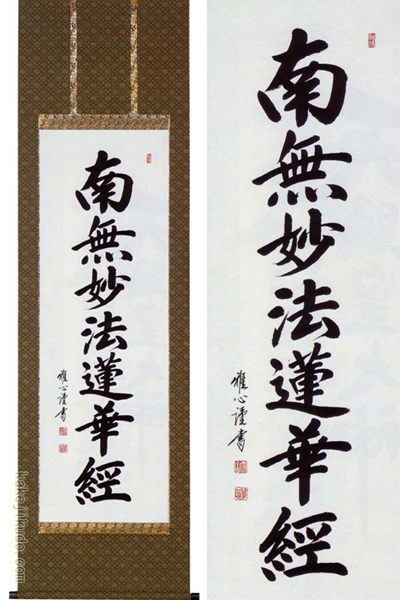 南無妙法蓮華經
雅心謹書
南無妙法蓮華經
雅心謹書
kakejikudo.com